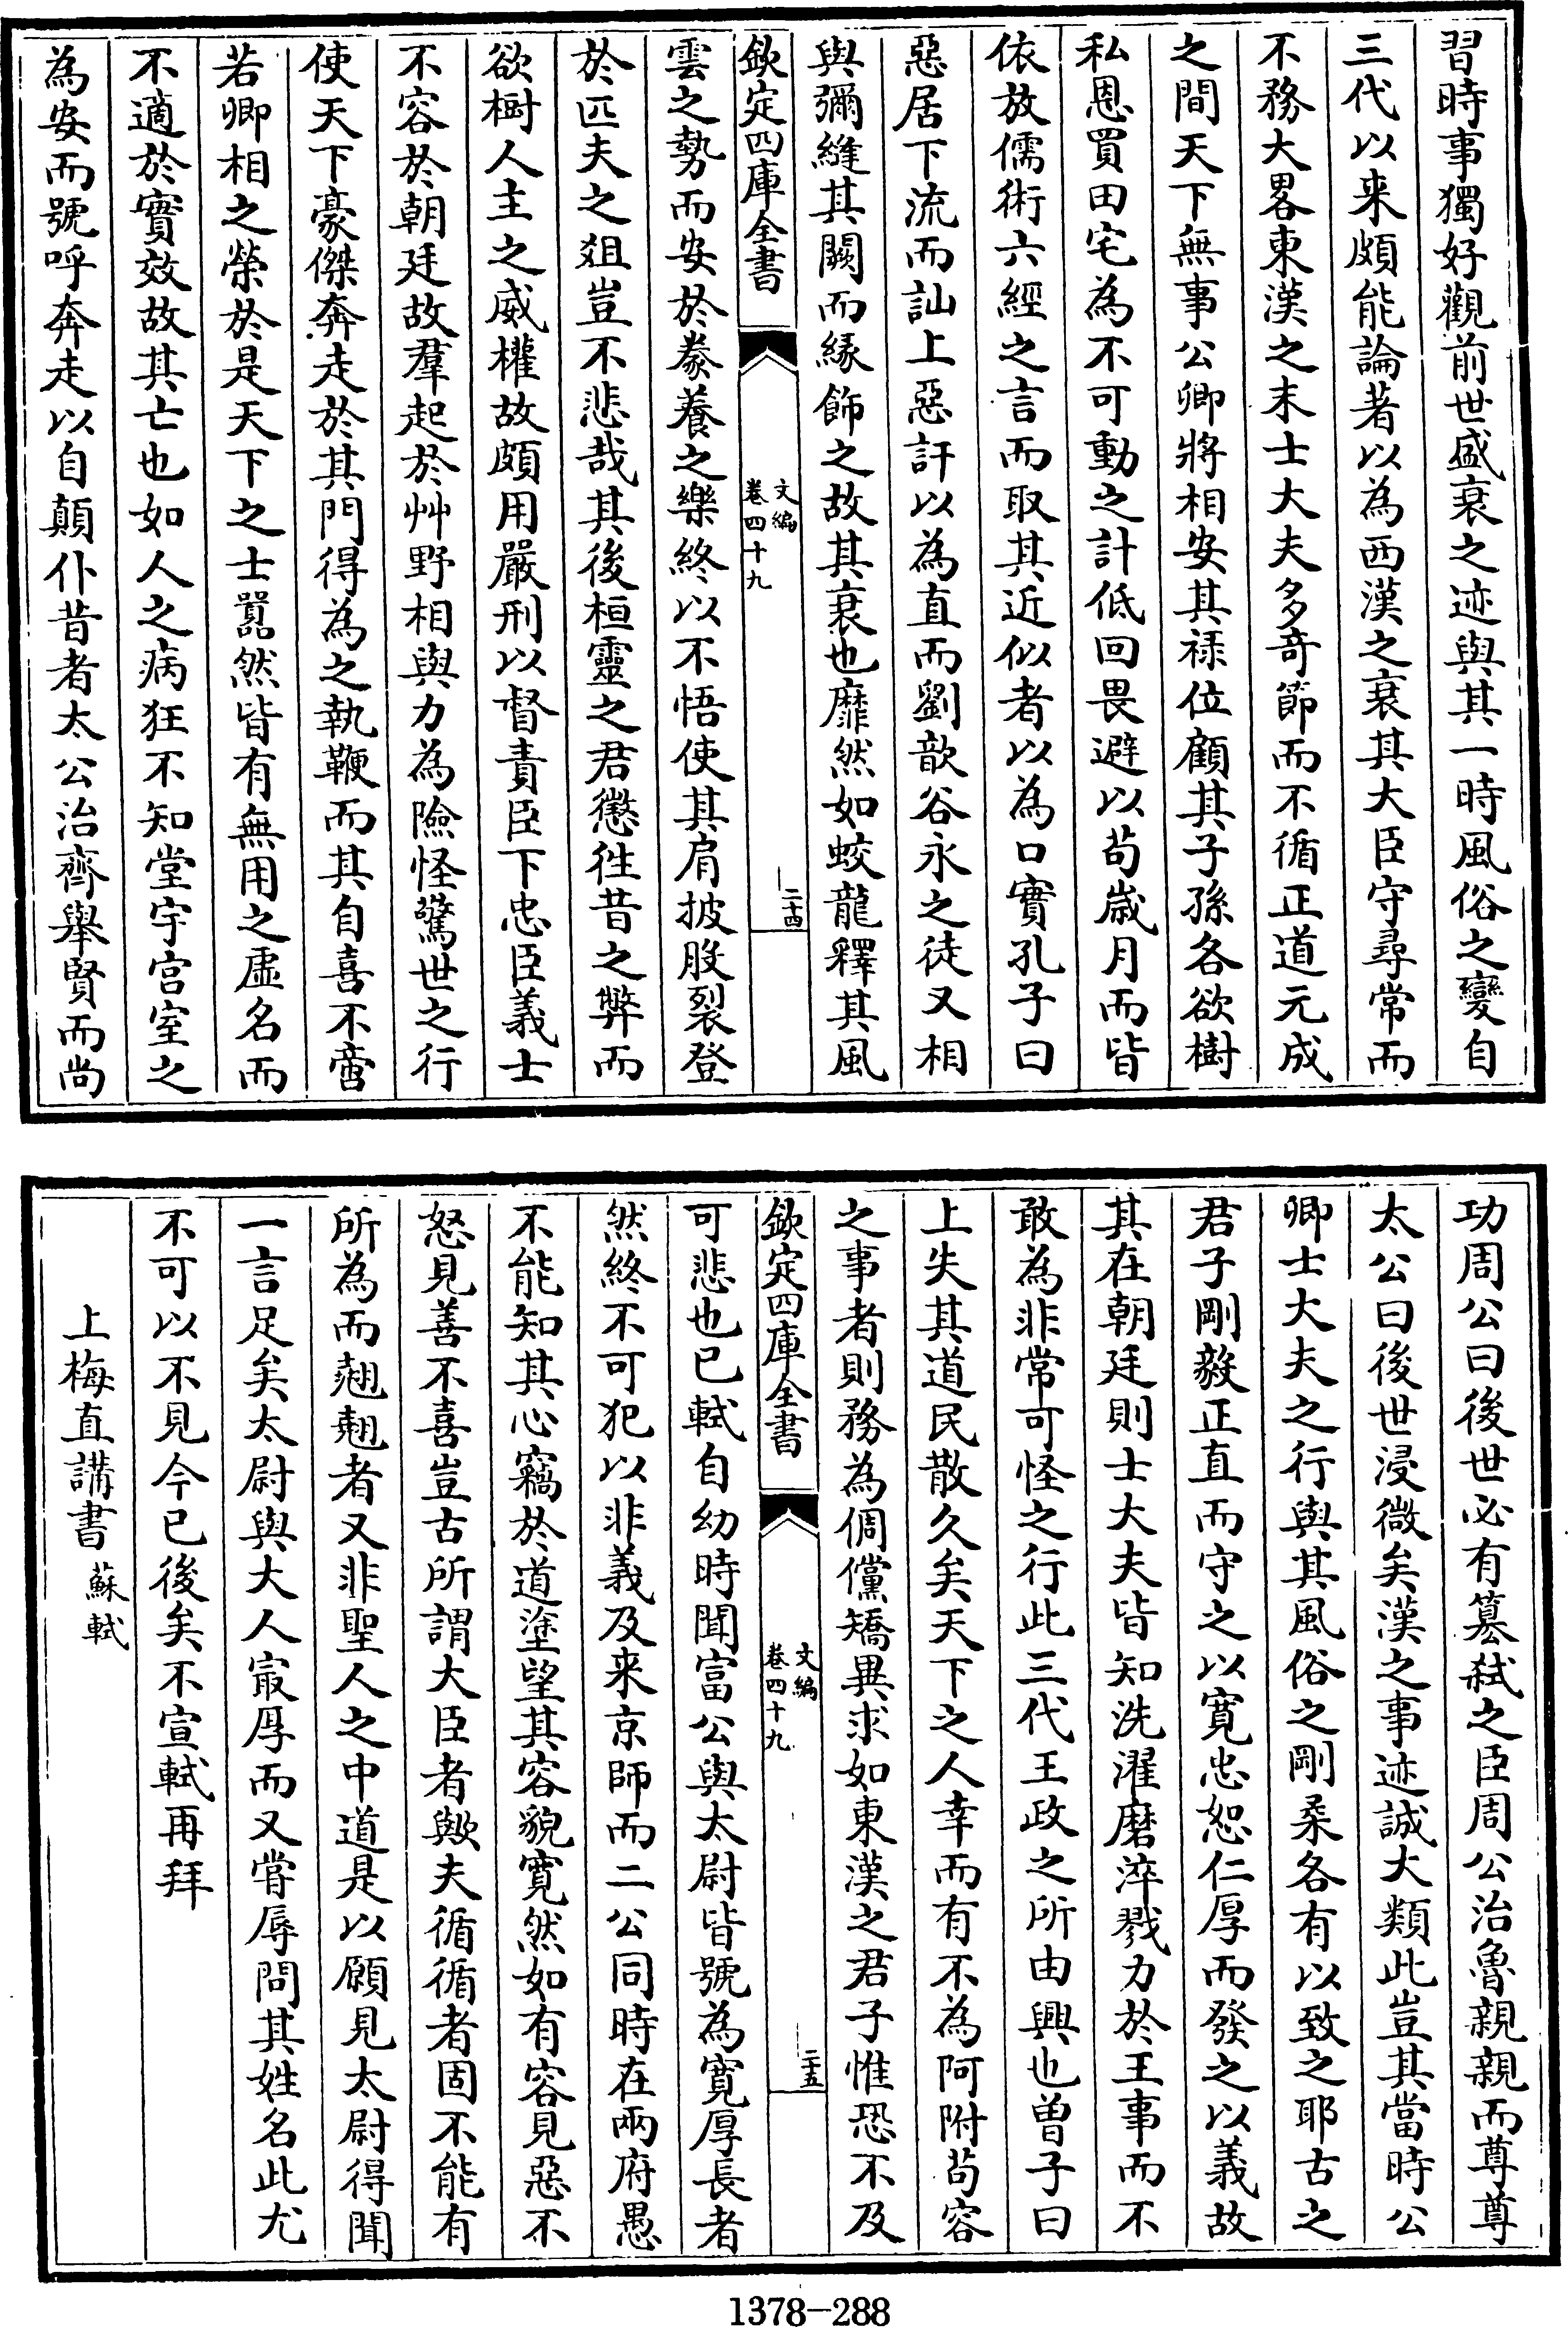 習時事獨好觀前世盛衰之迹與其一時風俗之變自
三代以来頗能論著以為西漢之衰其大臣守尋常而
不務大畧東漢之末士大夫多奇節而不循正道元成
之間天下無事公卿將相安其禄位顧其子孫各欲樹
私恩買田宅為不可動之計低回畏避以苟嵗月而皆
依放儒術六經之言而取其近似者以為口實孔子曰
惡居下流而訕上惡訐以為直而劉歆谷永之徒又相
與彌縫其闕而緣飾之故其衰也靡然如蛟龍釋其風
欽定四庫全書
文編
卷四十九
二十四
雲之勢而安於豢養之樂終以不悟使其肩披股裂登
於匹夫之俎豈不悲哉其後桓靈之君懲徃昔之弊而
欲樹人主之威權故頗用嚴刑以督責臣下忠臣義士
不容於朝廷故羣起於艸野相與力為險怪驚世之行
使天下豪傑奔走於其門得為之執鞭而其自喜不啻
若卿相之榮於是天下之士囂然皆有無用之虛名而
不適於實效故其亡也如人之病狂不知堂宇宫室之
為安而號呼奔走以自顛仆昔者太公治齊舉賢而尚
功周公曰後世必有簒弑之臣周公治魯親親而尊尊
太公曰後世浸微矣漢之事迹誠大類此豈其當時公
卿士大夫之行與其風俗之剛柔各有以致之耶古之
君子剛毅正直而守之以寛忠恕仁厚而發之以義故
其在朝廷則士大夫皆知洗濯磨淬戮力於王事而不
敢為非常可怪之行此三代王政之所由興也曽子曰
上失其道民散久矣天下之人幸而有不為阿附苟容
之事者則務為倜儻矯異求如東漢之君子惟恐不及
欽定四庫全書
文編
卷四十九
二十五
可悲也已軾自幼時聞富公與太尉皆號為寛厚長者
然終不可犯以非義及来京師而二公同時在兩府愚
不能知其心竊於道塗望其容貌寛然如有容見惡不
怒見善不喜豈古所謂大臣者歟夫循循者固不能有
所為而翹翹者又非聖人之中道是以願見太尉得聞
一言足矣太尉與大人㝡厚而又甞辱問其姓名此尤
不可以不見今已後矣不宣軾再拜
上梅直講書 蘇軾
1378-288